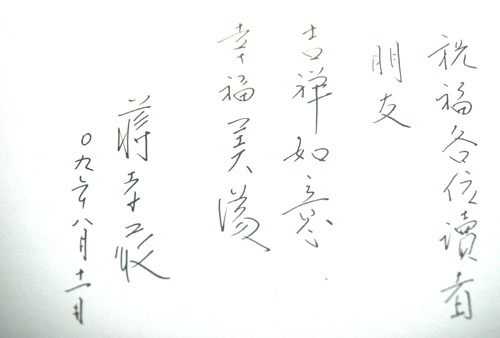 祝福各位讀者
朋友
吉祥如意
幸福美滿
蔣孝嚴
〇九年八月十一日